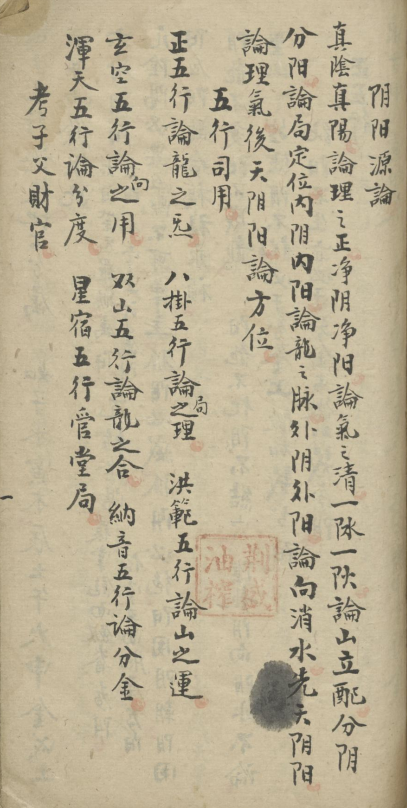 阴阳源論
真陰真陽論理之正净阴净阳論氣之清一休一𠆩論山立配分阴
分阳論局定位内阴内阳論龍之脉外阴外阳論向消水先天阴阳
論理氣後天阴阳論方位
五行司用
正五行論龍之炁 八掛五行論局之理 洪範五行論山之運
玄空五行論向之用 双山五行論龍之合 納音五行论分金
渾天五行論分度 星宿五行管堂局
考子父財官
荆城
油榨